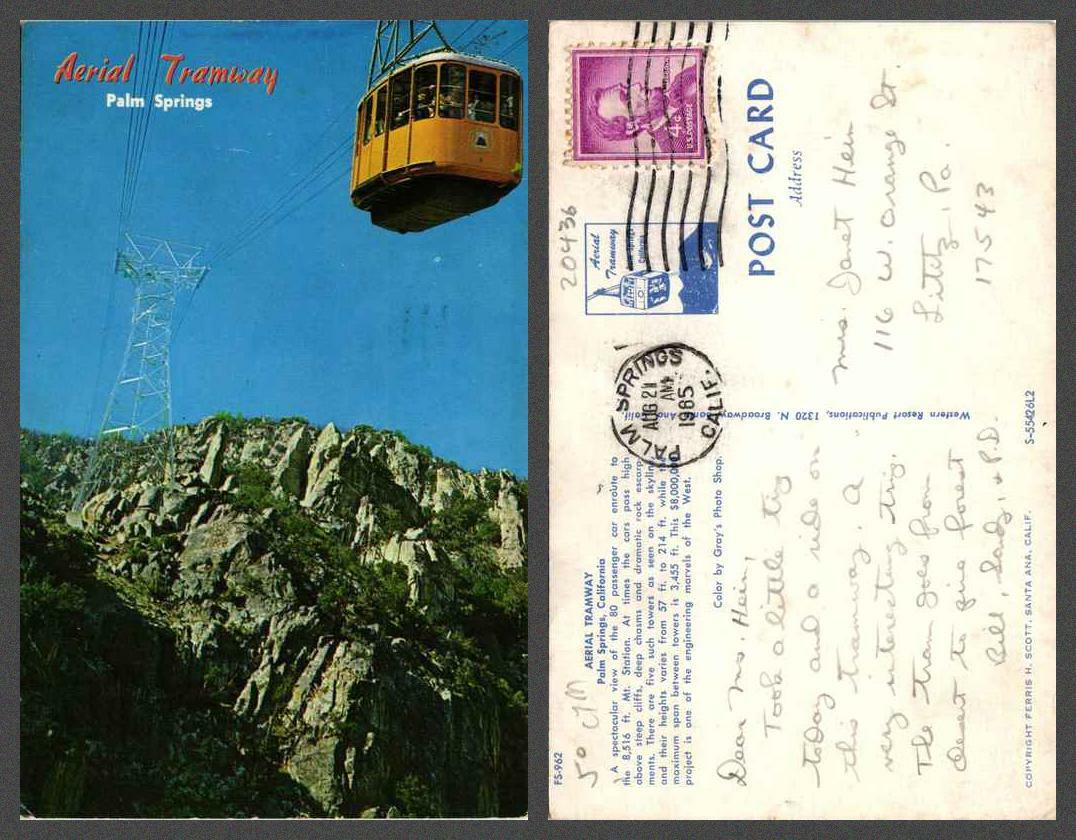 Aerial Tramway
Palm Springs
FS-962
50
AERIAL TRAMWAY
Palm Springs, California
A spectacular view of the 80 passenger car enroute to
the 8,516 ft. Mt. Station. At times the cars pass high
above steep cliffs, deep chasms and dramatic rock escarp-
ments. There are five such towers as seen on the skyline
and their heights varies from 57 ft. to 214 ft. while the
maximum span between towers is 3,455 ft. This $8,000,000
project is one of the engineering marvels of the West.
Color by Gray's Photo Shop.
Dear Mrs. Hein,
Took a little trip
today and a ride on
this tramway. A
very interesting trip.
The tram goes from
desert to pine forest
Bill, Sady, & P.D.
COPYRIGHT FERRIS H. SCOTT, SANTA ANA, CALIF.
S-55426L2
Western Resort Publications, 1320 N. Broadway, Santa Ana, Calif.
PALM SPRINGS
AUG 21
AM
1965
CALIF.
20436
Aerial
Tramway
Palm Springs
California
4¢
U.S. POSTAGE
POST CARD
Address
Mrs. Janet Hein
116 W. Orange St.
Lititz, Pa.
17543